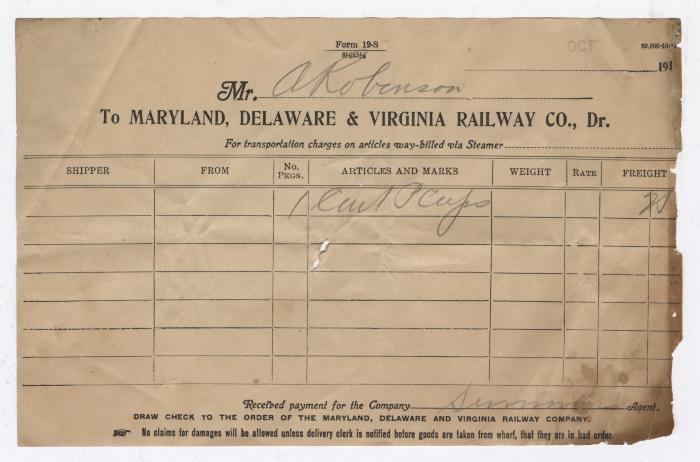 Form 19-S
OCT
191
Mr. A Robinson
To MARYLAND, DELAWARE & VIRGINIA RAILWAY CO., Dr.
For transportation charges on articles way-billed via Steamer
SHIPPER FROM No. Pkgs. ARTICLES AND MARKS WEIGHT RATE FREIGHT
1 Cups 25
Received payment for the Company Agent.
DRAW CHECK TO THE ORDER OF THE MARYLAND, DELAWARE AND VIRGINIA RAILWAY COMPANY.
☞ No claims for damages will be allowed unless delivery clerk is notified before goods are taken from wharf, that they are in bad order.